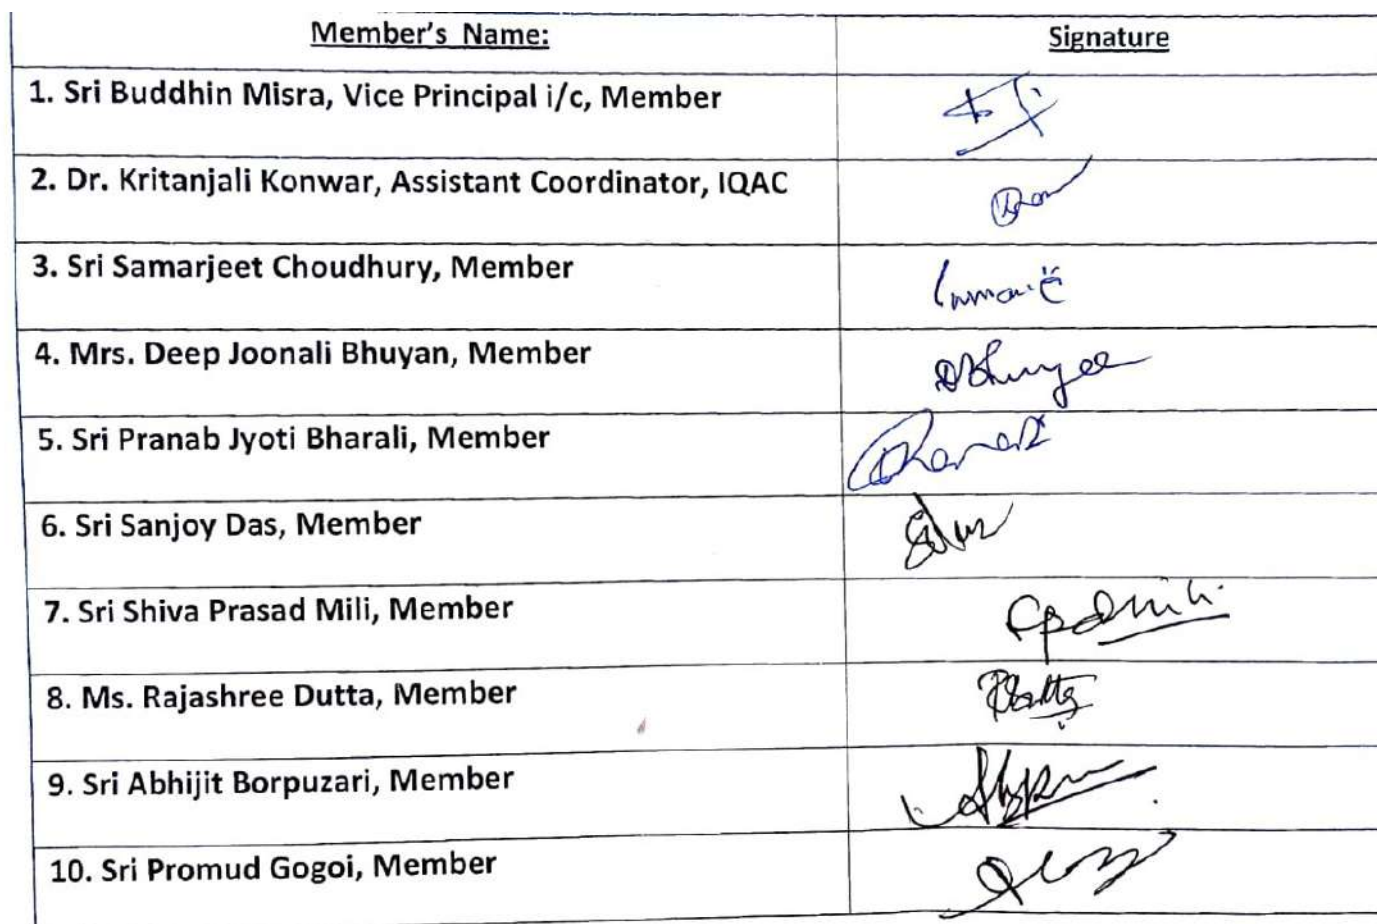 Member's Name: Signature
1. Sri Buddhin Misra, Vice Principal i/c, Member
2. Dr. Kritanjali Konwar, Assistant Coordinator, IQAC
3. Sri Samarjeet Choudhury, Member
4. Mrs. Deep Joonali Bhuyan, Member
5. Sri Pranab Jyoti Bharali, Member
6. Sri Sanjoy Das, Member
7. Sri Shiva Prasad Mili, Member
8. Ms. Rajashree Dutta, Member
9. Sri Abhijit Borpuzari, Member
10. Sri Promud Gogoi, Member